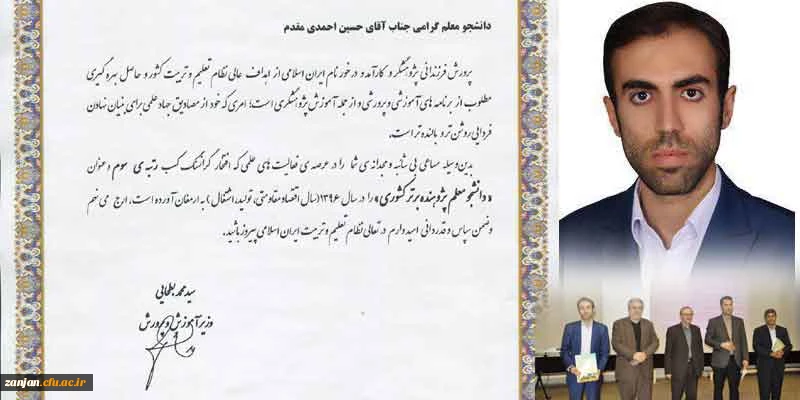 دانشجو معلم گرامی جناب آقای حسین احمدی مقدم
پرورش فرزندانی پژوهشگر و کارآمد و درخور نام ایران اسلامی از اهداف عالی نظام تعلیم و تربیت کشور و حاصل بهره گیری
مطلوب از برنامه های آموزشی و پرورشی و از جمله آموزش پژوهشگری است؛ امری که خود از مصادیق جهاد علمی برای بنیان نهادن
فردایی روشن تر و بالنده تر است.
بدین وسیله مساعی بی شائبه و مجدانه ی شما را در عرصه ی فعالیت های علمی که افتخار گرانسنگ کسب رتبه ی سوم و عنوان
«دانشجو معلم پژوهنده برتر کشوری» را در سال ۱۳۹۶(سال اقتصاد مقاومتی، تولید، اشتغال) به ارمغان آورده است، ارج می نهم
و ضمن سپاس و قدردانی امیددارم در تعالی نظام تعلیم و تربیت ایران اسلامی پیروز باشید.
سید محمد بطحایی
وزیر آموزش و پرورش
zanjan.cfu.ac.ir